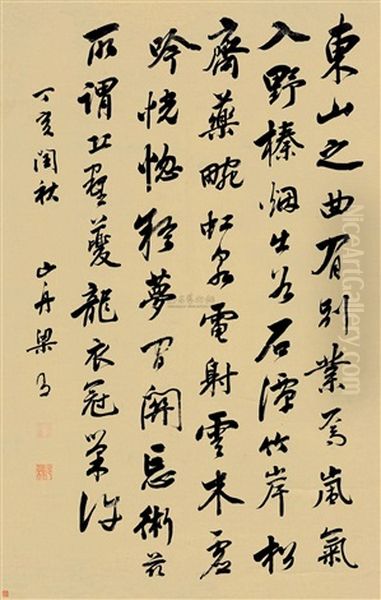 東山之曲有別業焉嵐氣
入野榛烟出谷石潭竹岸松
齋藥畹虹泉電射雲木虛
吟恍惚疑夢間關忘術茲
所謂丘壑夔龍衣冠巢許
丁亥閏秋
山舟梁
NiceArtGallery.com